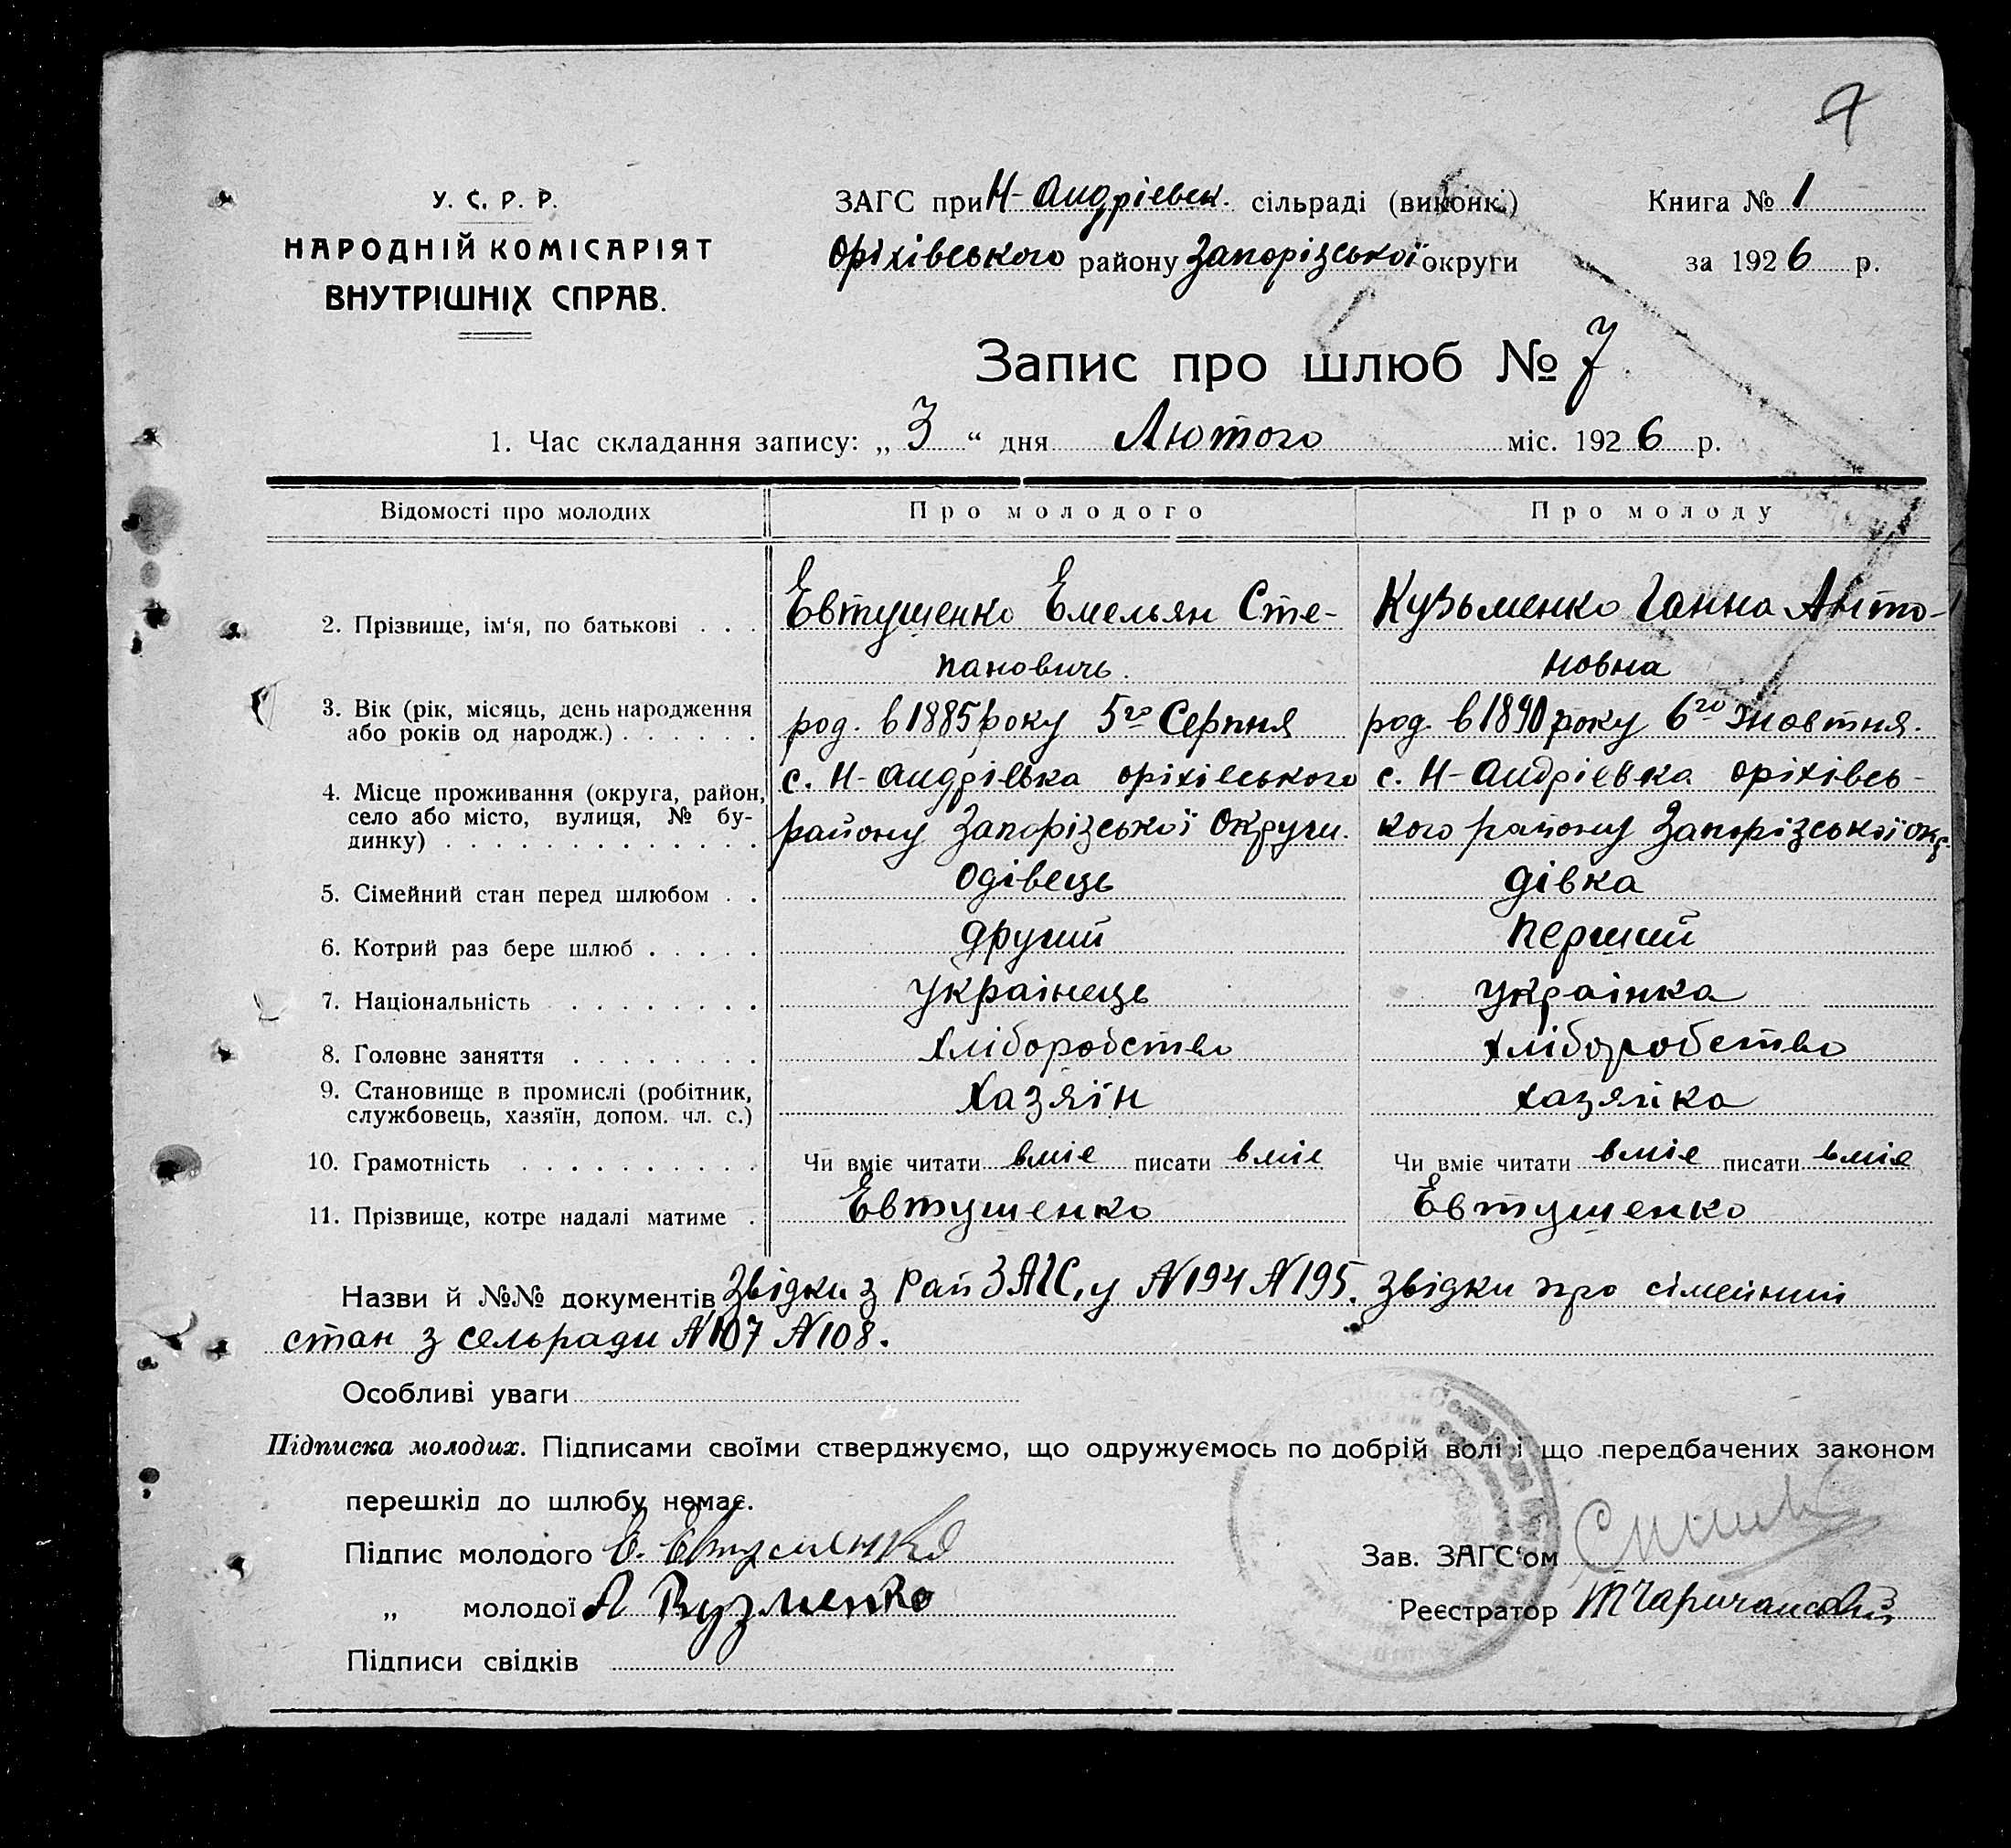 У. С. Р. Р.
НАРОДНІЙ КОМІСАРІЯТ
ВНУТРІШНІХ СПРАВ.
ЗАГС при Н-Андріевск. сільраді (виконк.)
Оріхівського району Запорізської округи
Книга № 1
за 1926 р.
Запис про шлюб № 7
1. Час складання запису: „ 3 “ дня Лютого міс. 1926 р.
Відомості про молодих Про молодого Про молоду
2. Прізвище, ім'я, по батькові . . . Евтушенко Емельян Сте- Кузьменко Ганна Анто-
пановичь. новна
3. Вік (рік, місяць, день народження род. в 1885 року 5го Серпня род. в 1890 року 6го Жовтня.
або років од народж.) . . . . . .
с. Н-Андрівка оріхівського с. Н-Андріевка оріхівсь-
4. Місце проживання (округа, район,
село або місто, вулиця, № бу- району Запорізської Округи. кого району Запорізської окр.
динку) . . . . . . . . . . . . .
5. Сімейний стан перед шлюбом . . Одівець дівка
6. Котрий раз бере шлюб . . . . . другий перший
7. Національність . . . . . . . . українець українка
8. Головне заняття . . . . . . . . хліборобство хліборобство
9. Становище в промислі (робітник, Хазяїн хазяйка
службовець, хазяїн, допом. чл. с.)
10. Грамотність . . . . . . . . . . Чи вміє читати вміе писати вміе Чи вміє читати вміе писати вміе
11. Прізвище, котре надалі матиме . Евтушенко Евтушенко
Назви й №№ документів Звідки з Рай ЗАГС,у №194 №195. Звідки про сімейний
стан з сельради №107 №108.
Особливі уваги
Підписка молодих. Підписами своїми стверджуємо, що одружуємось по добрій волі і що передбачених законом
перешкід до шлюбу немає.
Підпис молодого Е. Евтушенко
„ молодої А Кузменко
Підписи свідків
Зав. ЗАГС'ом
Реєстратор